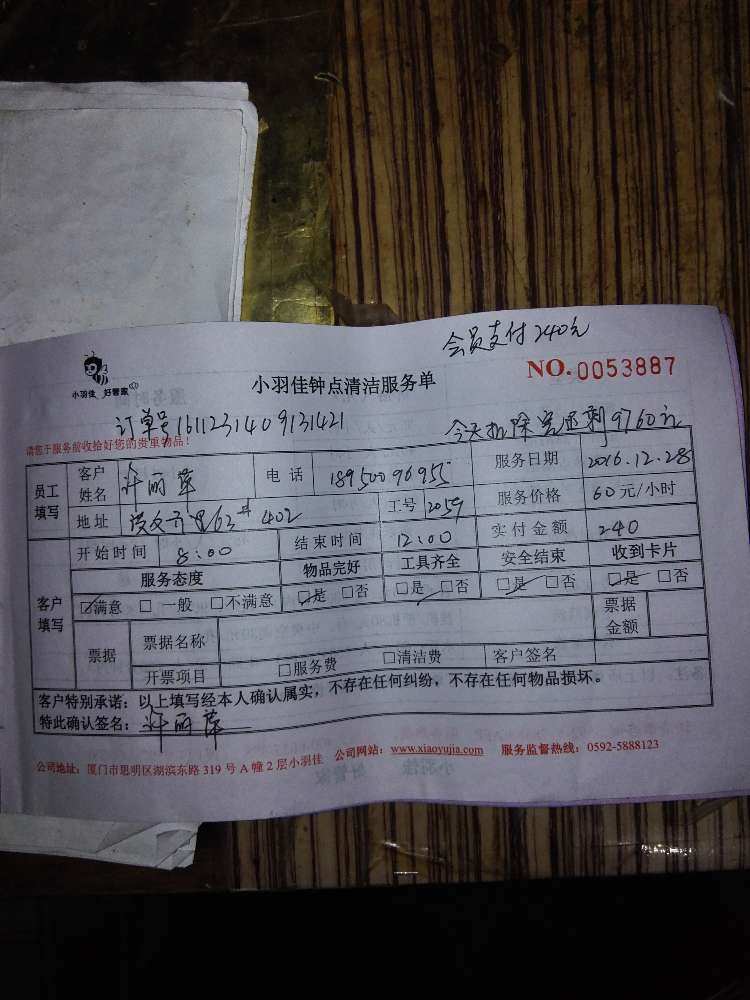 会员支付240元
小羽佳 好管家
小羽佳钟点清洁服务单
NO. 0053887
订单号1611231409131421
今天扣除完还剩9760元
请您于服务前收拾好您的贵重物品！
员工填写 客户姓名 许丽萍 电话 18950096955 服务日期 2016.12.28
地址 63# 402 工号 2059 服务价格 60元/小时
客户填写 开始时间 8:00 结束时间 12:00 实付金额 240
服务态度 物品完好 工具齐全 安全结束 收到卡片
☑满意 □一般 □不满意 ☑是 □否 ☑是 □否 ☑是 □否 ☑是 □否
票据 票据名称 票据金额
开票项目 □服务费 □清洁费 客户签名
客户特别承诺：以上填写经本人确认属实，不存在任何纠纷，不存在任何物品损坏。
特此确认签名：许丽萍
公司地址：厦门市思明区湖滨东路 319 号 A 幢 2 层小羽佳 公司网站：www.xiaoyujia.com 服务监督热线：0592-5888123